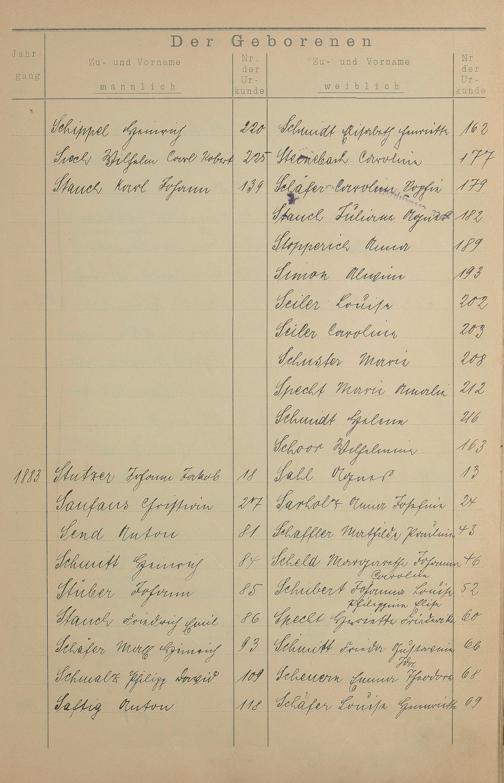 Der Geborenen
Jahr
gang
Zu- und Vorname
männlich
Nr.
der
Ur-
kunde
Zu- und Vorname
weiblich
Nr
der
Ur-
kunde
Schippel Heinrich 220 Schmidt Elisabeth Henriette 162
Siech Wilhelm Carl Robert 225 Steinebach Carolina 177
Stauch Karl Johann 139 Schäfer Caroline Sophie 179
Stauch Juliane Agnes 182
Stopperich Anna 189
Simon Alwine 193
Seiler Louise 202
Seiler Carolina 203
Schuster Marie 208
Specht Marie Amalie 212
Schmidt Helene 216
Schoor Wilhelmine 163
1883 Stutzer Johann Jakob 18 Sahl Agnes 13
Saufaus Christian 27 Sarholz Anna Josefine 24
Send Anton 81 Schaffler Mathilde Pauline 43
Schmitt Heinrich 84 Scheld Margarethe Johanna 46
Caroline
Stüber Johann 85 Schubert Johanna Louise 52
Philippine Elise
Stauch Friedrich Emil 86 Specht Henriette Friederike 60
Schäfer Max Heinrich 93 Schmitt Frieda 66
Schmalz Philipp David 109 Scheuern Emma Theodora 68
Saftig Anton 118 Schäfer Louise Henriette 69